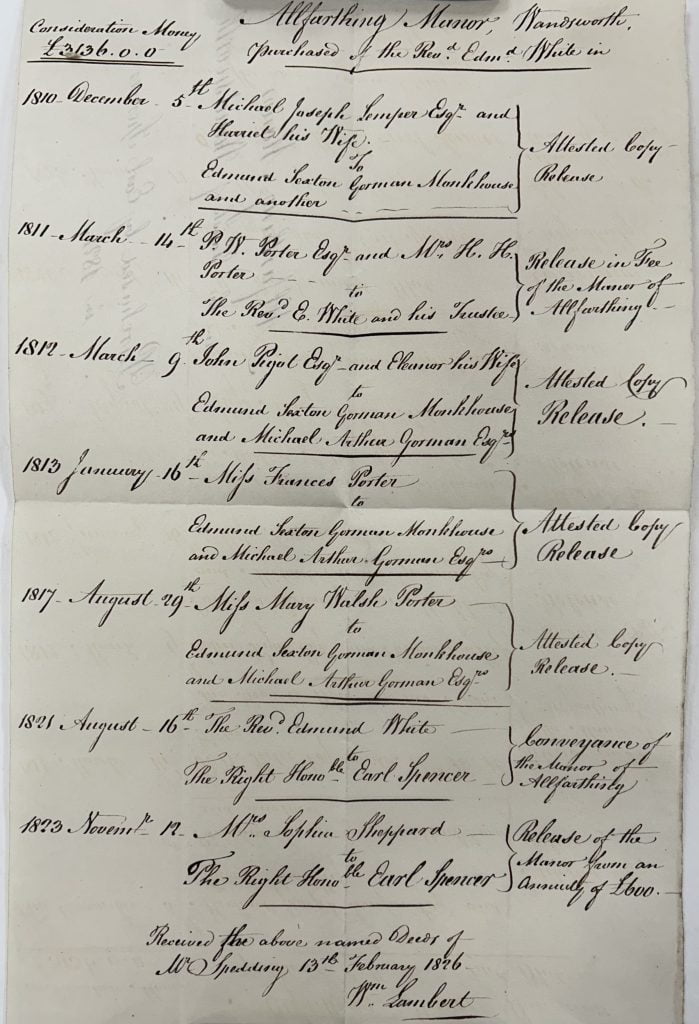 Consideration Money
£3136.0.0
Allfarthing Manor, Wandsworth,
purchased of the Rev.d Edm.d White in
1810 - December - 5th - Michael Joseph Semper Esqr. and
Harriet his Wife.
To
Edmund Sexton Gorman Monkhouse
and another
Attested Copy
Release
1811 - March - 14th - P. W. Porter Esqr. and Mrs. H. H.
Porter
to
The Rev.d E. White and his Trustee
Release in Fee
of the Manor of
Allfarthing.
1812 - March - 9th - John Pigot Esqr. and Eleanor his Wife
to
Edmund Sexton Gorman Monkhouse
and Michael Arthur Gorman Esqrs
Attested Copy
Release.
1813 January 16th - Miss Frances Porter
to
Edmund Sexton Gorman Monkhouse
and Michael Arthur Gorman Esqrs
Attested Copy
Release
1817 - August - 29th - Miss Mary Walsh Porter
to
Edmund Sexton Gorman Monkhouse
and Michael Arthur Gorman Esqrs
Attested Copy
Release.
1821 August - 16th - The Rev.d Edmund White
to
The Right Hono.ble Earl Spencer
Conveyance of
the Manor of
Allfarthing
1823 Novemr. 12 - Mrs. Sophia Sheppard
to
The Right Hono.ble Earl Spencer
Release of the
Manor from an
Annuity of £600.
Received the above named Deeds of
Mr. Spedding 13th February 1826
Wm. Lambert